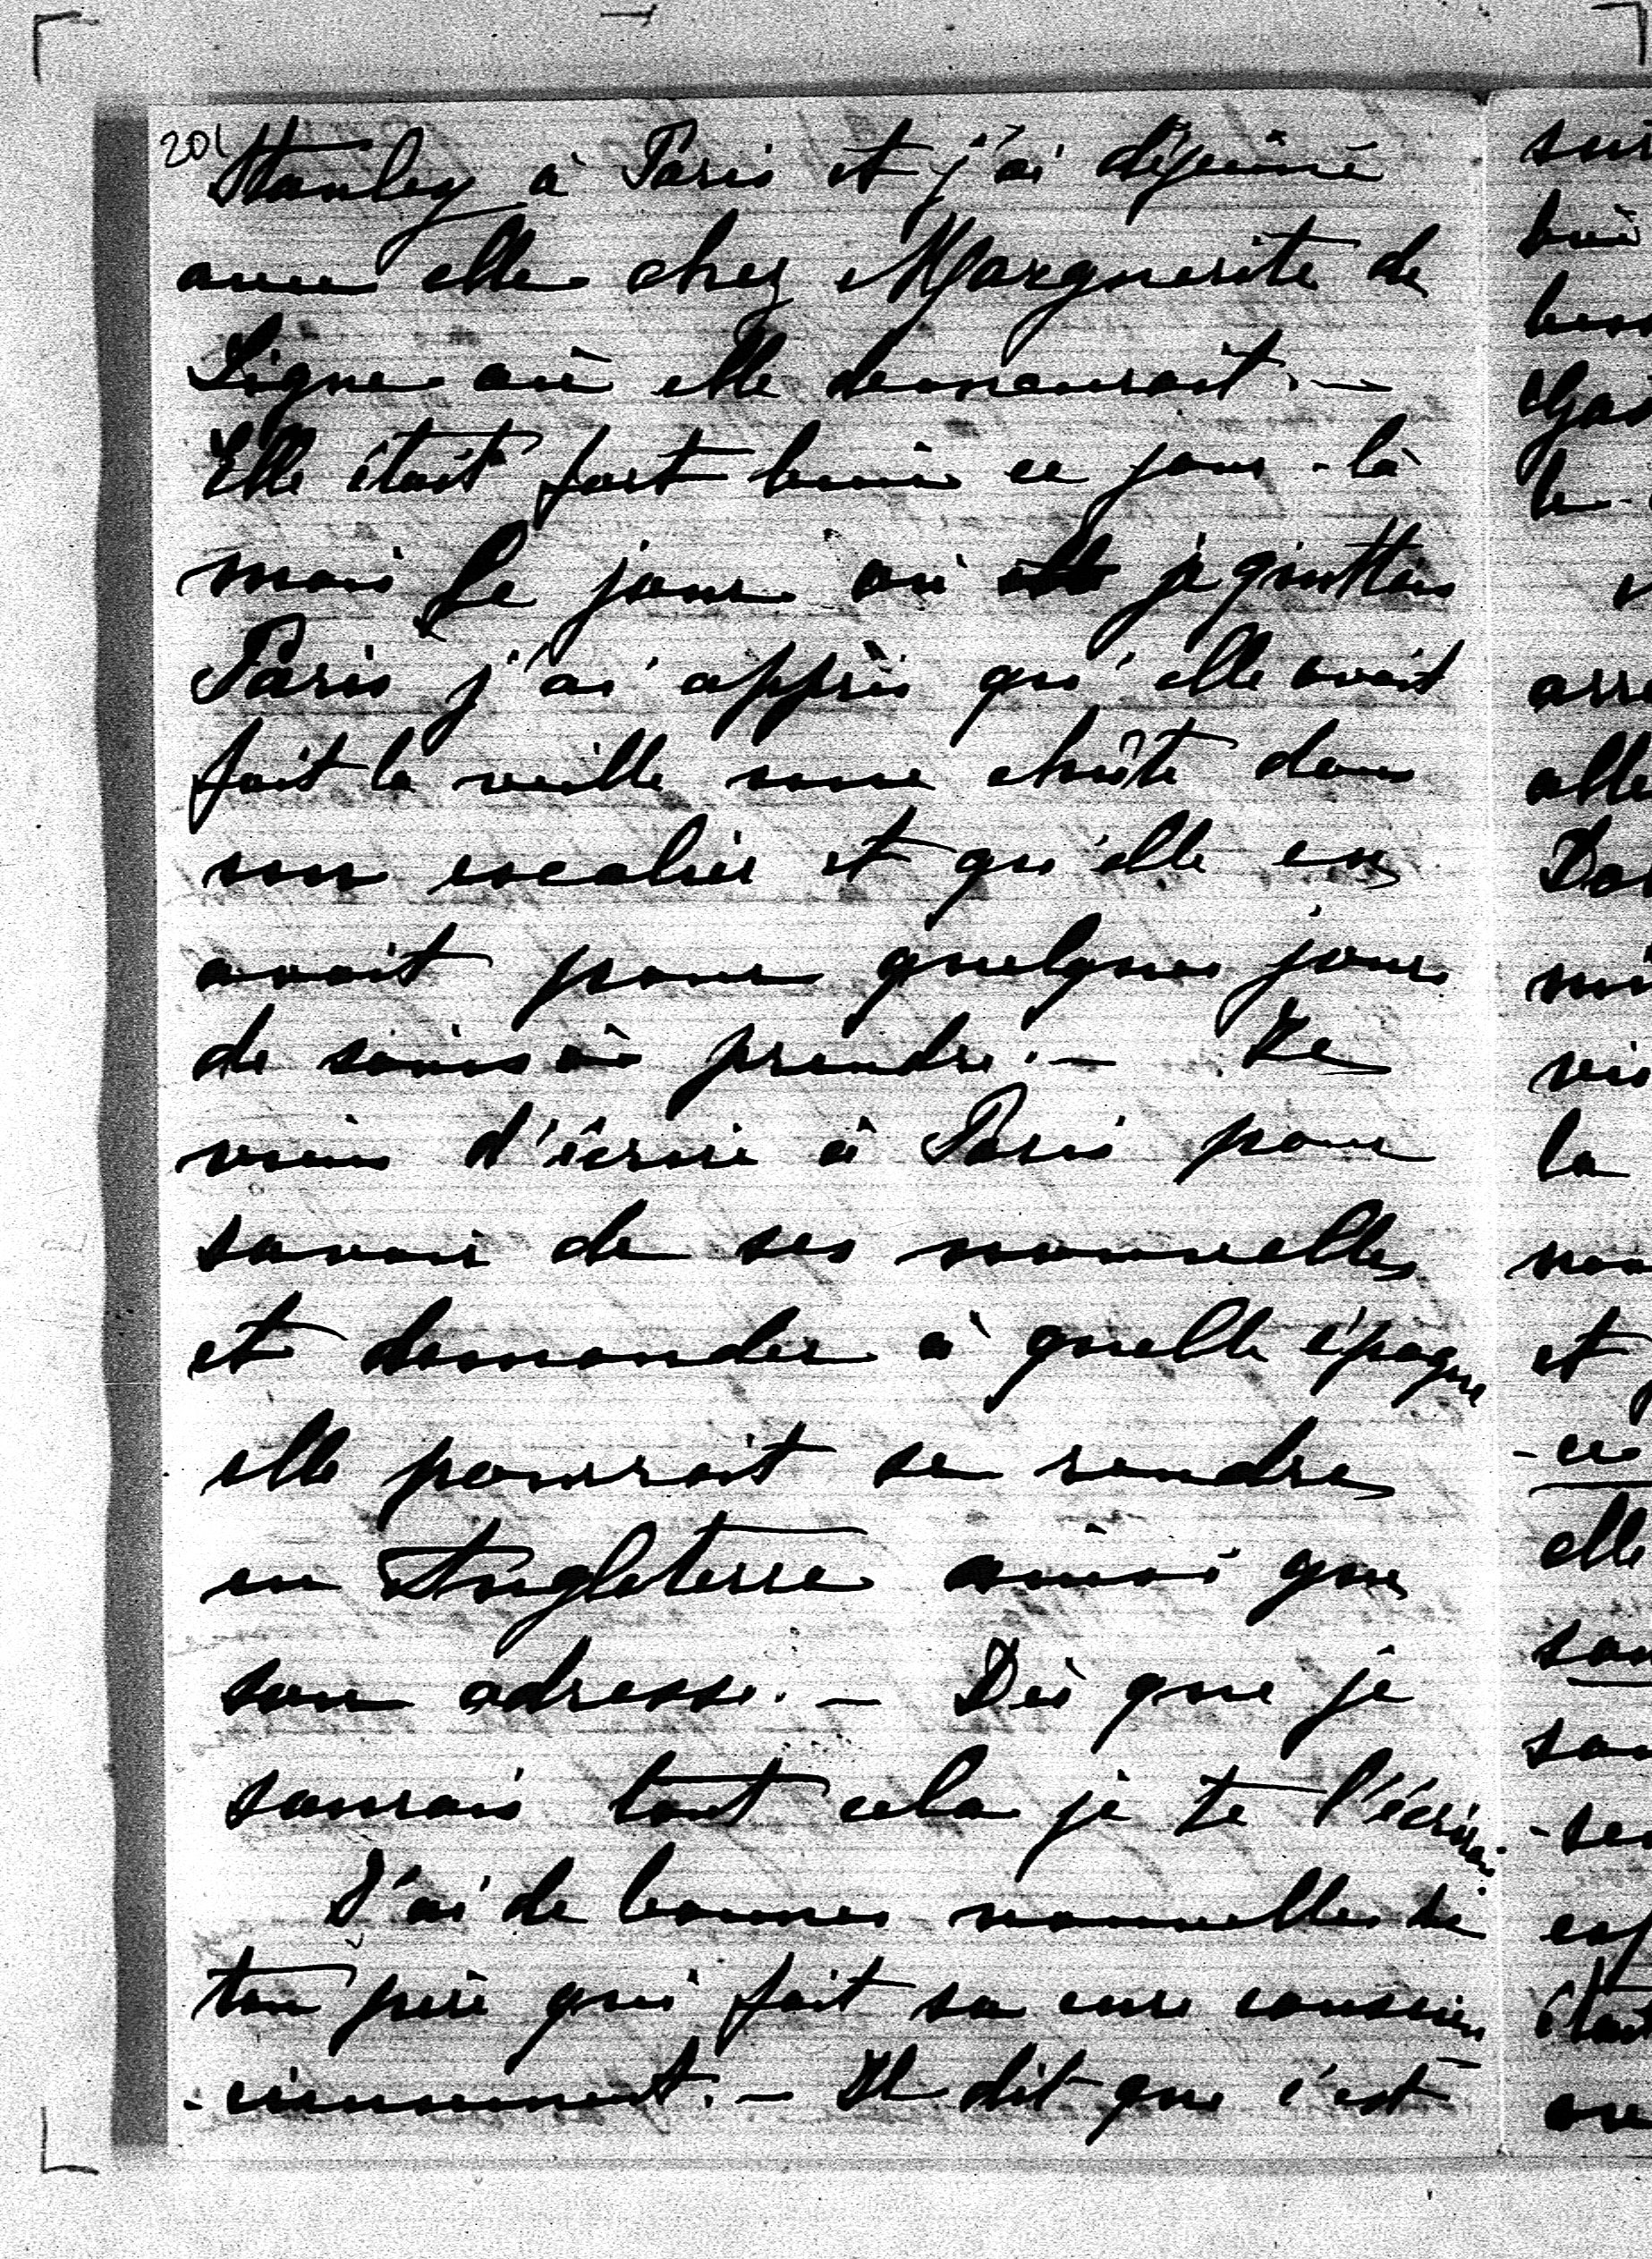 201
Stanley à Paris et j'ai déjeûné
avec elle chez Marguerite de
Ligne où elle demeurait. —
Elle était fort bien ce jour-là
mais le jour où je quittais
Paris j'ai appris qu'elle avait
fait la veille une chûte dans
son escalier et qu'elle en
avait pour quelques jours
de soins à prendre. — Je
viens d'écrire à Paris pour
savoir de ses nouvelles
et demander à quelle époque
elle pourrait se rendre
en Angleterre ainsi que
son adresse. — Dès que je
saurais tout cela je te l'écrirai
J'ai de bonnes nouvelles de
ton père qui fait sa cure conscien
-cieusement. — Il dit que c'est